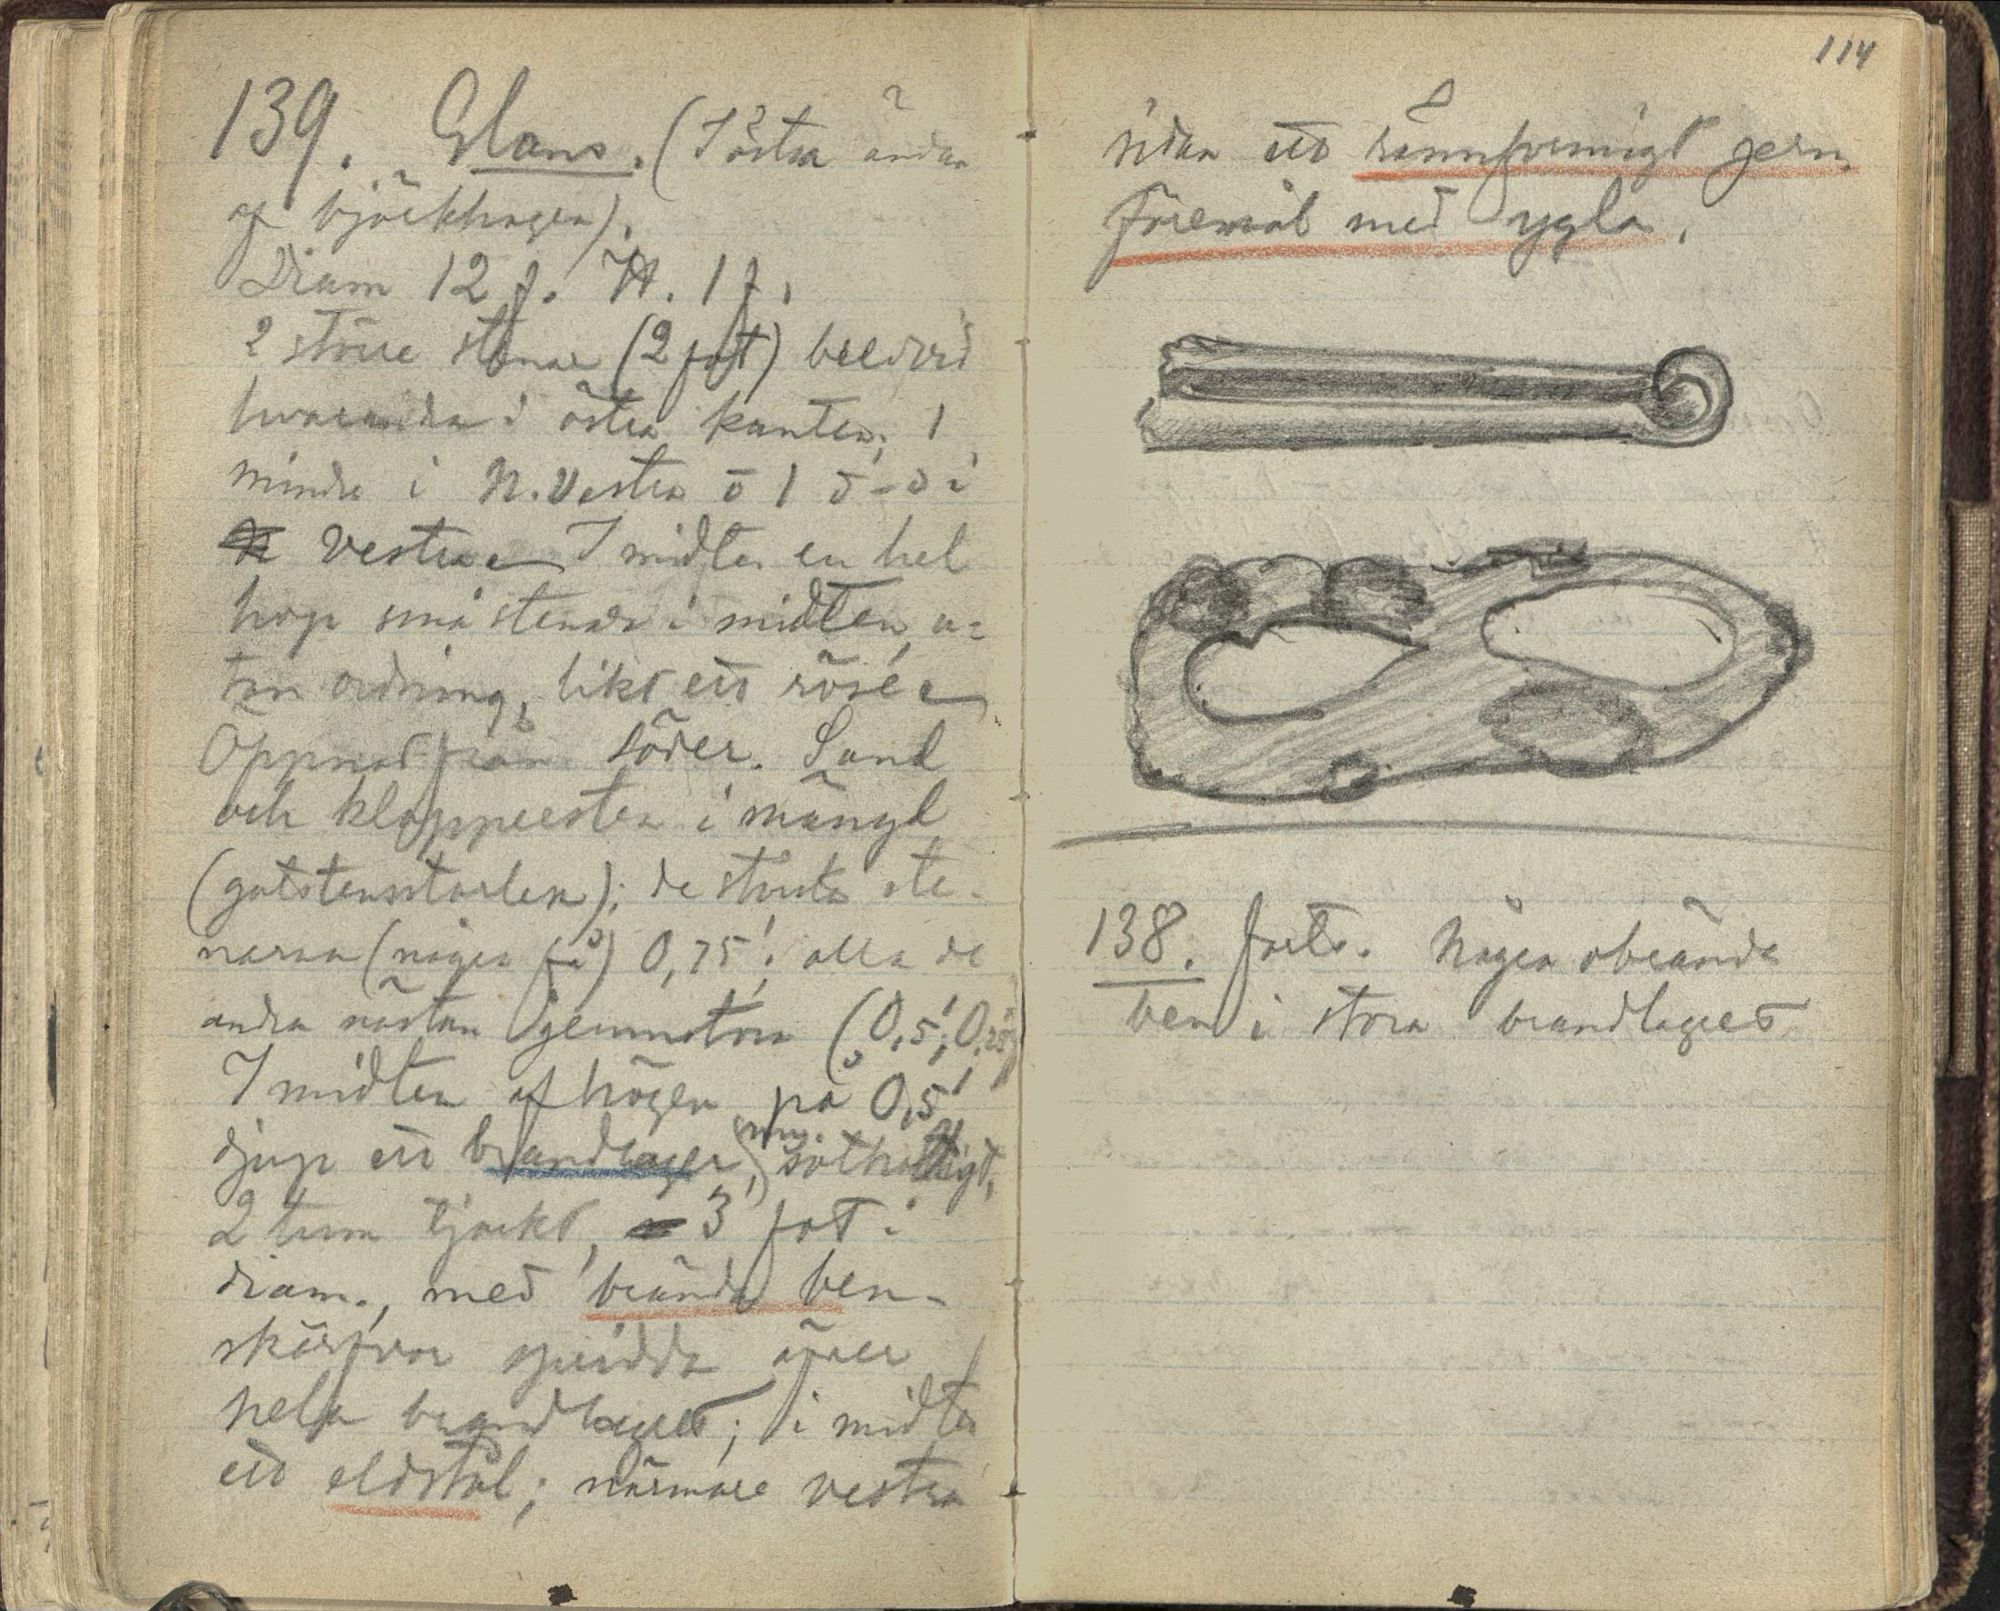 139. Glans. (I östra ändan
af björkhagen).
Diam 12 f. H. 1 f.
2 större stenar (2 fot) bredvid
hvarandra i östra kanten; 1
mindre i N. Vestra o 1 d-o i
vestra. I midten en hel
hop små stenar i midten, u=
tan ordning, likt ett röse.
Öppnad från söder. Sand
och klappersten i mängd
(gatstensstorlek); de största ste-
narna (några få) 0,75'; alla de
andra nästan jemnstora (0,5'; 0,25')
I midten af högen på 0,5'
djup ett brandlager, sothaltigt,
2 tum tjockt, 3 fot i
diam., med brända ben-
skärfvor spridda öfver
hela brandlagret; i midten
ett eldstål; närmare vestra
114
sidan ett rännformigt jern
föremål med ygla.
138. forts. Några obrända
ben i stora brandlagret